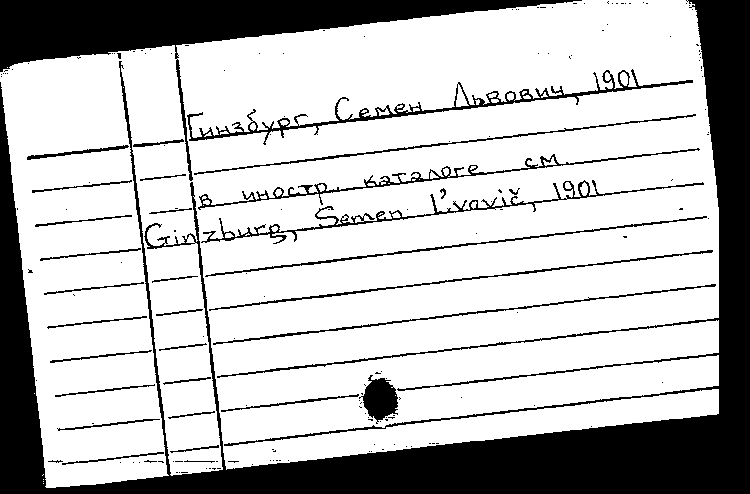 Гинзбург, Семен Львович, 1901
в иностр. каталоге см.
Ginzburg, Semen L'vovič, 1901